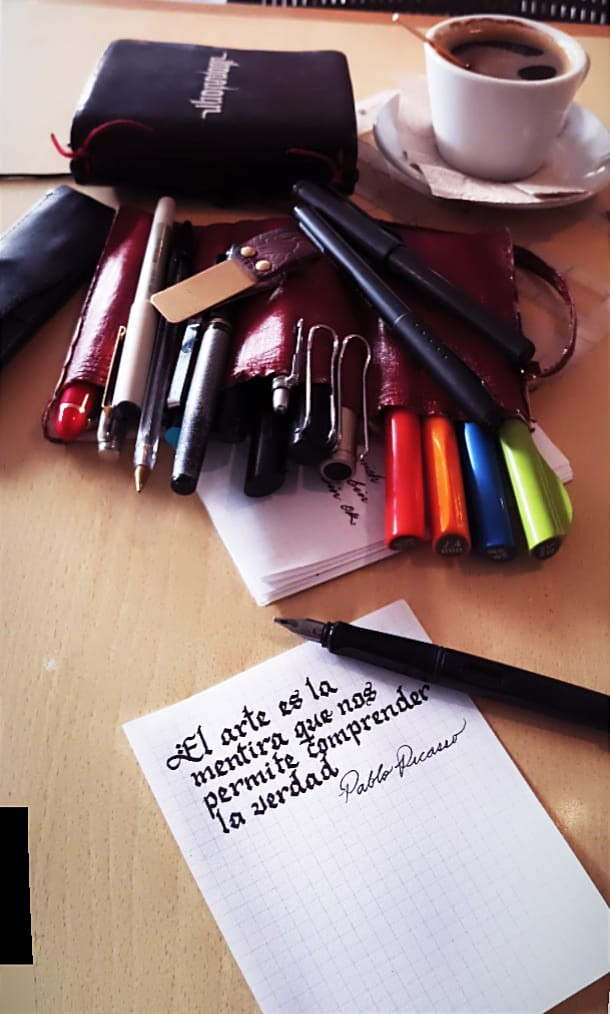 El arte es la
mentira que nos
permite comprender
la verdad
Pablo Picasso